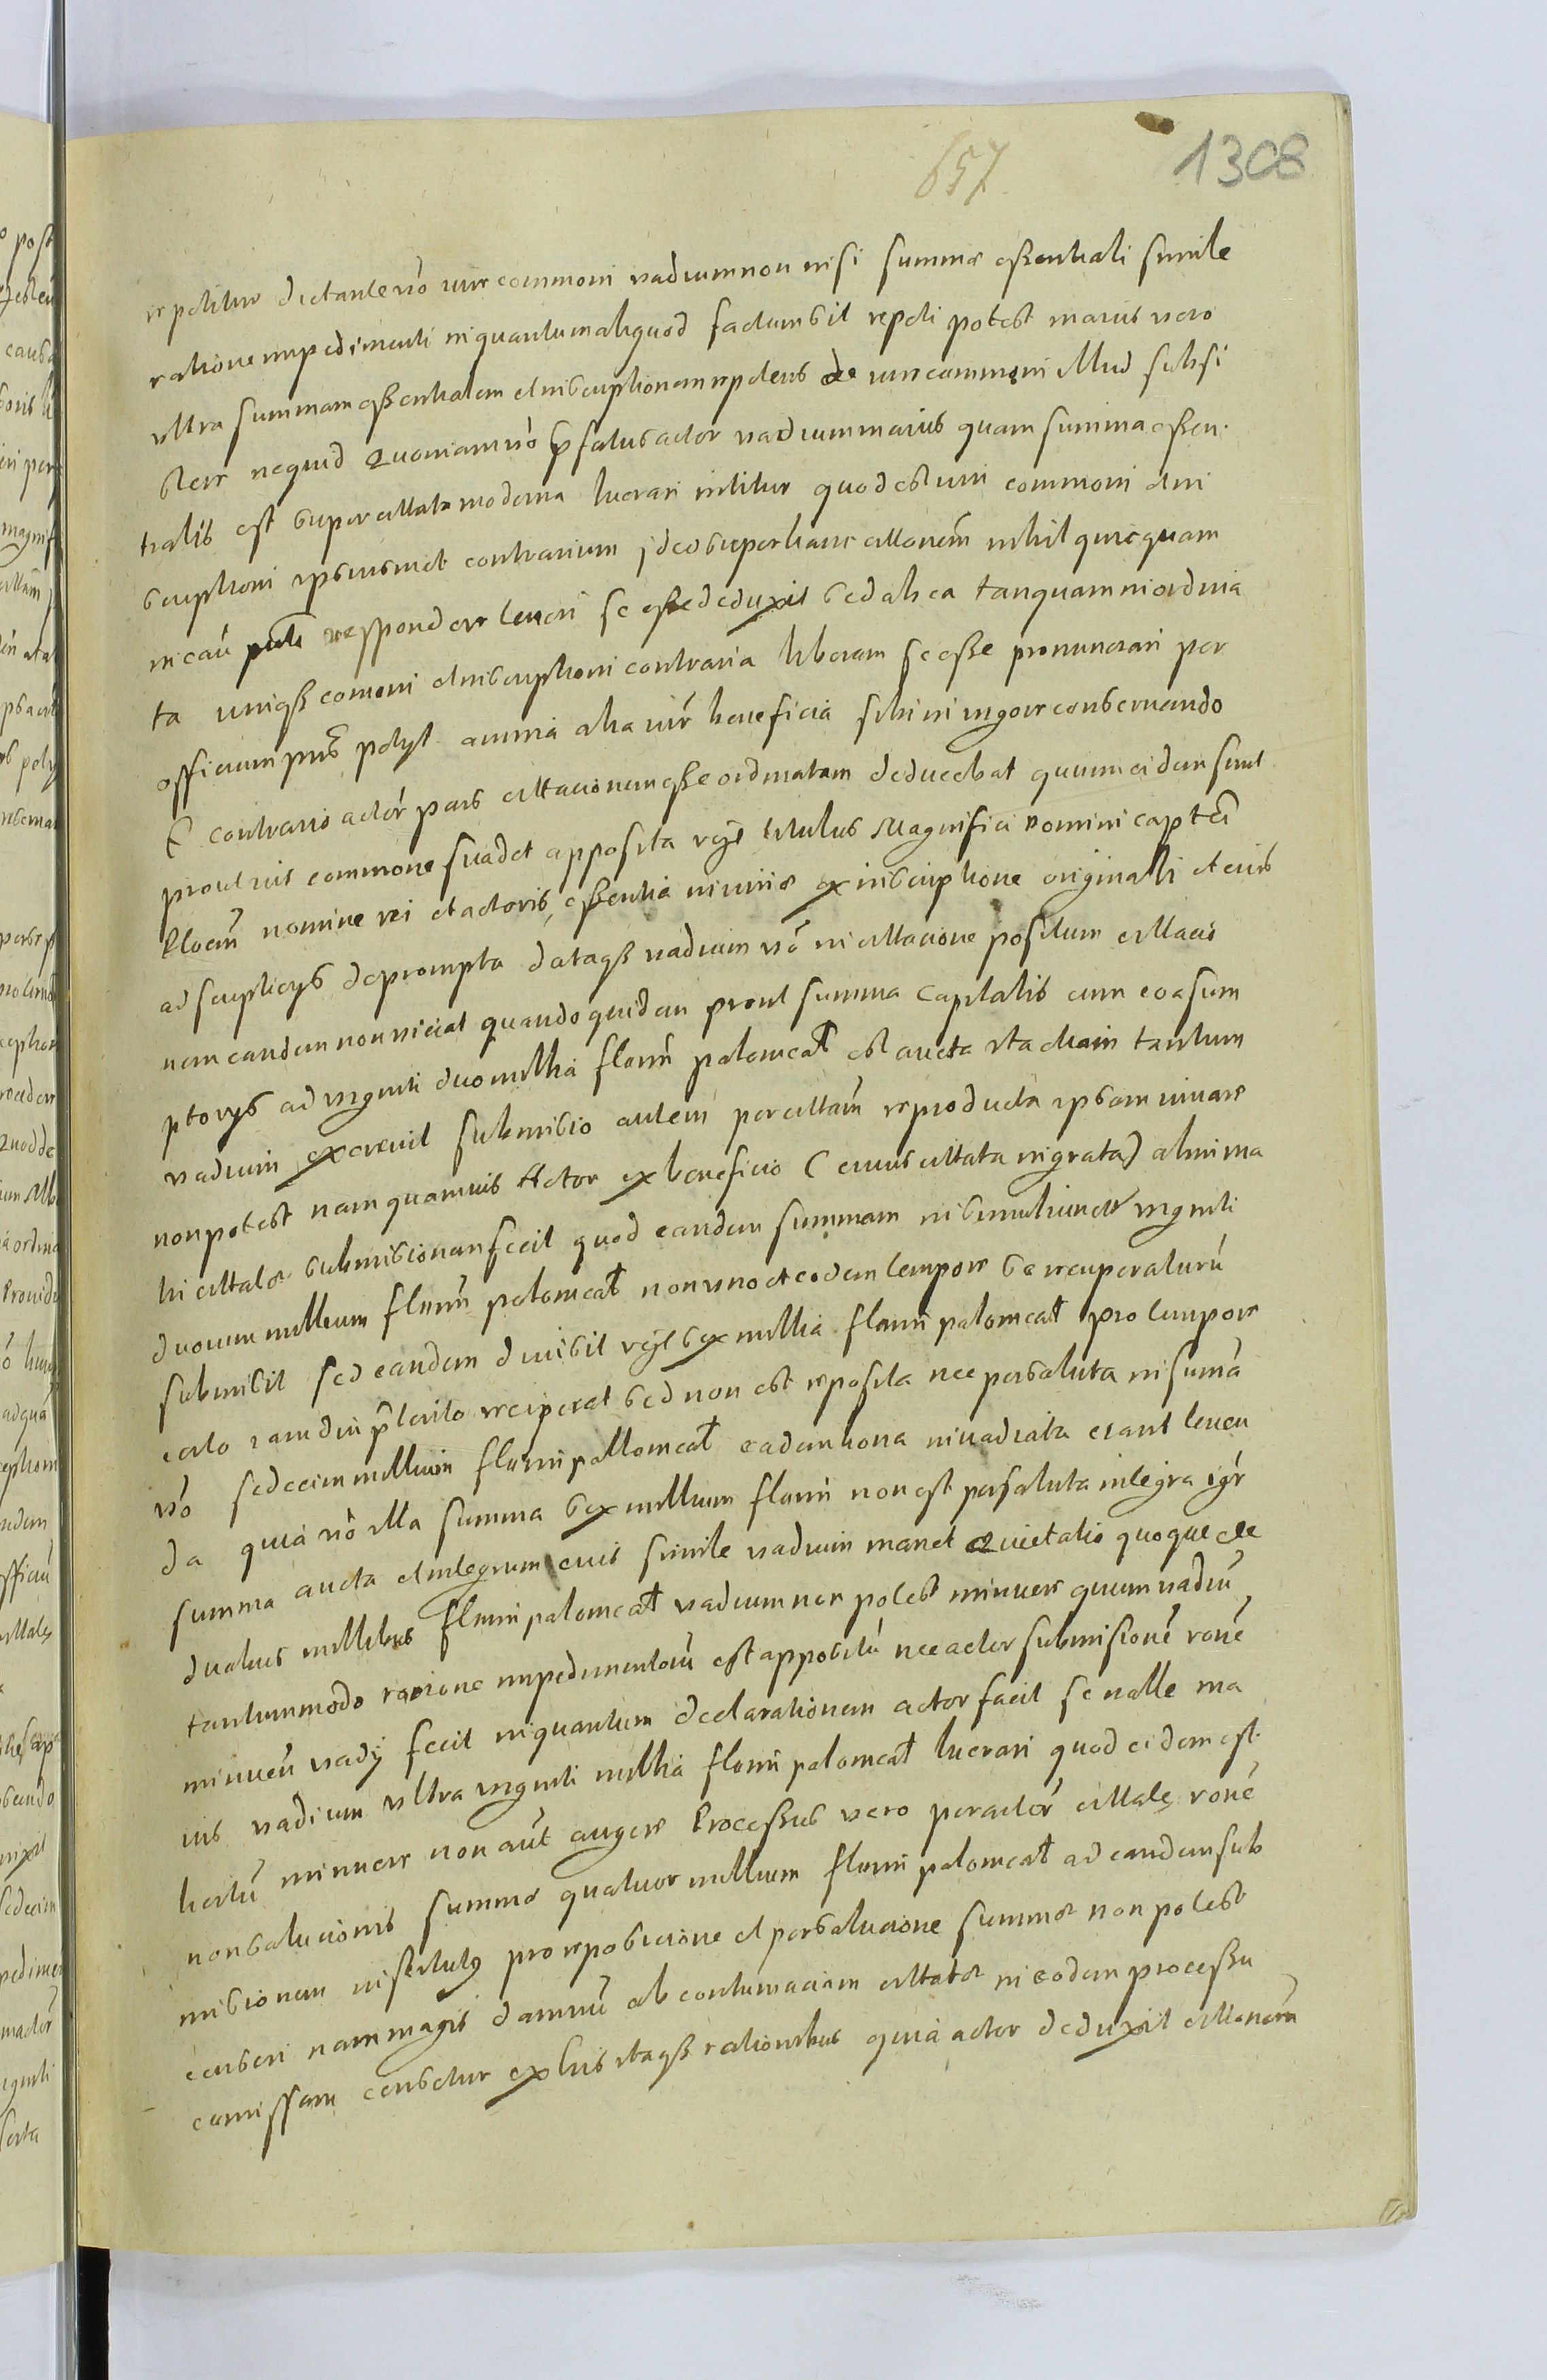 657
1308
repetitur dictante vo iure commoni vadium non nisi summæ essentiali simile
ratione impedimenti inquantum aliquod factum sit repeti potest maius vero
ultra summam essentialem et inscriptionem repetens de iure commoni illud subsi
stere nequid Quoniam vo pfatus actor vadium maius quam summa essen
tialis est super citata moderna lucrari nititur quod est iuri commoni et in
scriptioni ipsiusmet contrarium ideo super hanc cittonem nihil quicquam
in cau respondere teneri se esse deduxit sed ab ea tanquam inordina
ta iurique comoni et inscriptioni contraria liberam se esse pronunciari per
officium pns petyt omnia alia iur beneficia sibi in vigore conservando
E contrario actor pars cittacionem esse ordinatam deducebat quum eidem sunt
prout ius commone suadet apposita vdt titulus Magnifici Domini capt
Kiloem nomine rei et actoris, essentia nimirum ex inscriptione originali et eius
adscripticys deprompta dataqs vadium vo in cittacione positum cittacio
nem eandem non viciat quandoquidem prout summa capitalis cum eo asum
ptorys ad viginti duo millia floren polonical est aucta ita etiam tantum
vadium excrevit submissio autem per cittam reproducta ipsam iuvare
non potest nam quamvis Actor ex beneficio (cuius cittata ingrata) alinima
hi cittatæ submissionem fecit quod eandem summam insimul iunctæ viginti
duorum millium floren polonical non uno et eodem tempore se recuperaturu
submisit sed eandem divisit vdt sex millia floren polonical pro tempore
certo iamdiu pterito reciperet sed non est reposita nec persoluta in suma
vo sedecim millium floren pollonical eadem bona invadiata erant tenen
da quia vo illa summa sex millium floren non est persoluta integra igr
summa aucta et integrum eius simile vadium manet Quietatio quoque de
duabus millibus floren polonical vadium non potest minuere quum vadiu
tantummodo racione impedimentoru est appositu nec actor submisione rone
minuen vady fecit inquantum declarationem actor facit se nolle ma
ius vadium ultra viginti millia floren polonical lucrari quod eidem est
licitu minuere non aut augere Processus vero per actor cittatæ rone
non solucionis summæ quatuor millium floren polonical ad eandem sub
missionem institutus pro repositione et persolucione summæ non potest
censeri nam magis damnu ob contumaciam cittatæ in eodem processu
comissam censetur ex his itaqs rationibus quia actor deduxit cittonem